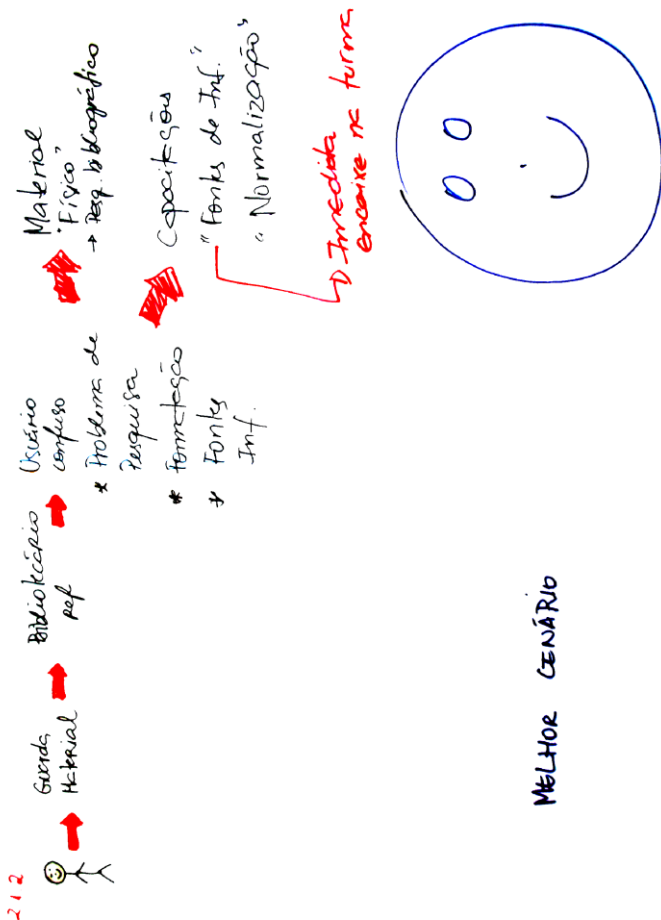 212
Guarda
Material
Bibliotecário
Ref
Usuário
confuso
* Problema de
Pesquisa
* Formatação
* Fontes
Inf.
Material
"Físico"
→ Pesq. bibliográfico
Capacitações
"Fontes de Inf."
"Normalização"
Imediata
encaixe na turma
MELHOR CENÁRIO